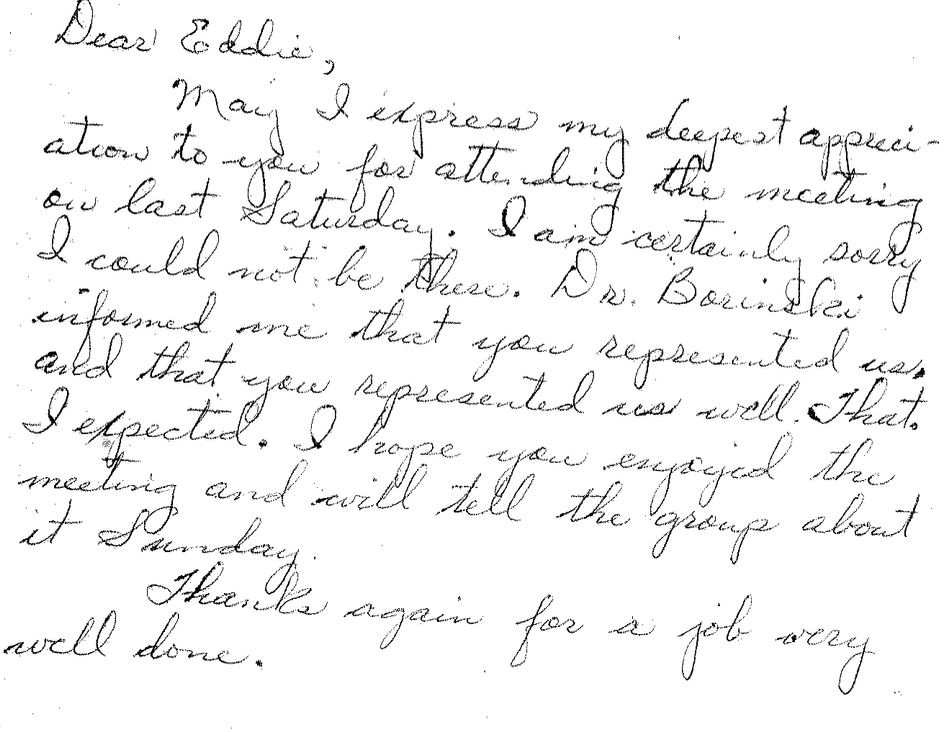 Dear Eddie,
May I express my deepest appreci-
ation to you for attending the meeting
on last Saturday. I am certainly sorry
I could not be there. Dr. Borinski
informed me that you represented us,
and that you represented us well. That
I expected. I hope you enjoyed the
meeting and will tell the group about
it Sunday.
Thanks again for a job very
well done.